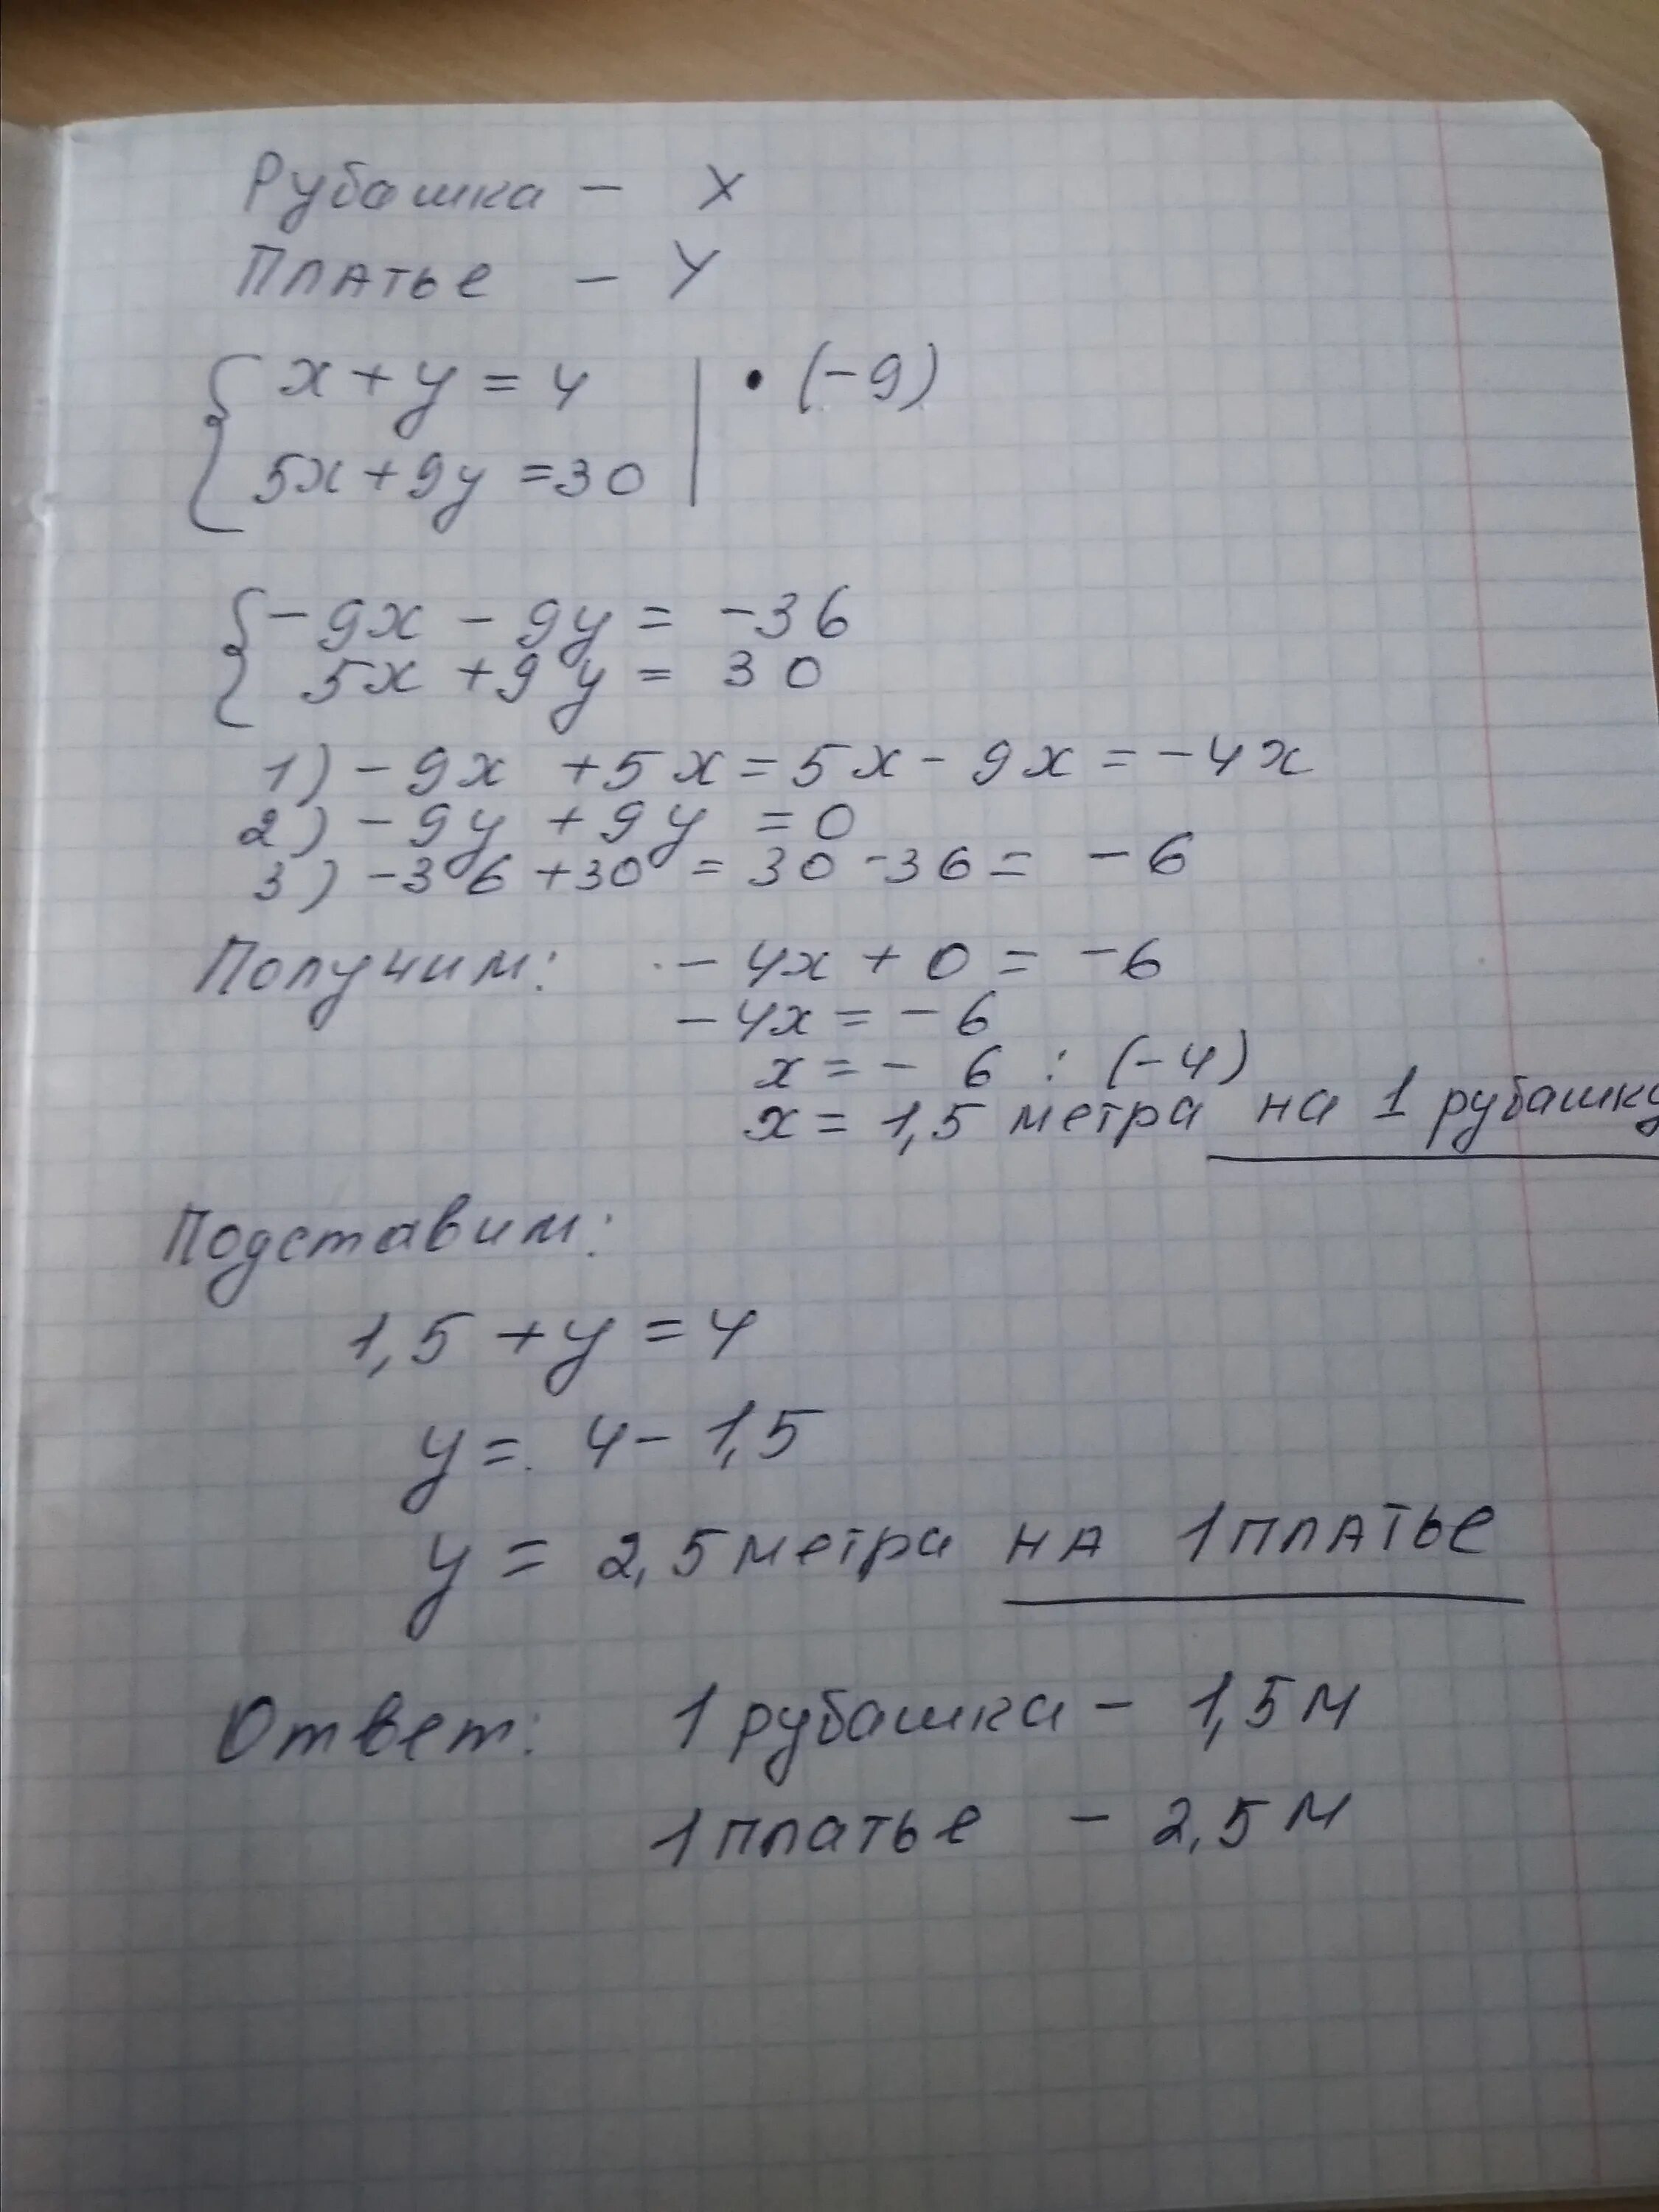 Рубашка – х
Платье – у
х + у = 4 | • (–9)
5х + 9у = 30
–9х – 9у = –36
5х + 9у = 30
1) –9х + 5х = 5х – 9х = –4х
2) –9у + 9у = 0
3) –36 + 30 = 30 – 36 = –6
Получим: –4х + 0 = –6
–4х = –6
х = –6 : (–4)
х = 1,5 метра на 1 рубашку
Подставим:
1,5 + у = 4
у = 4 – 1,5
у = 2,5 метра на 1 платье
Ответ: 1 рубашка – 1,5 м
1 платье – 2,5 м